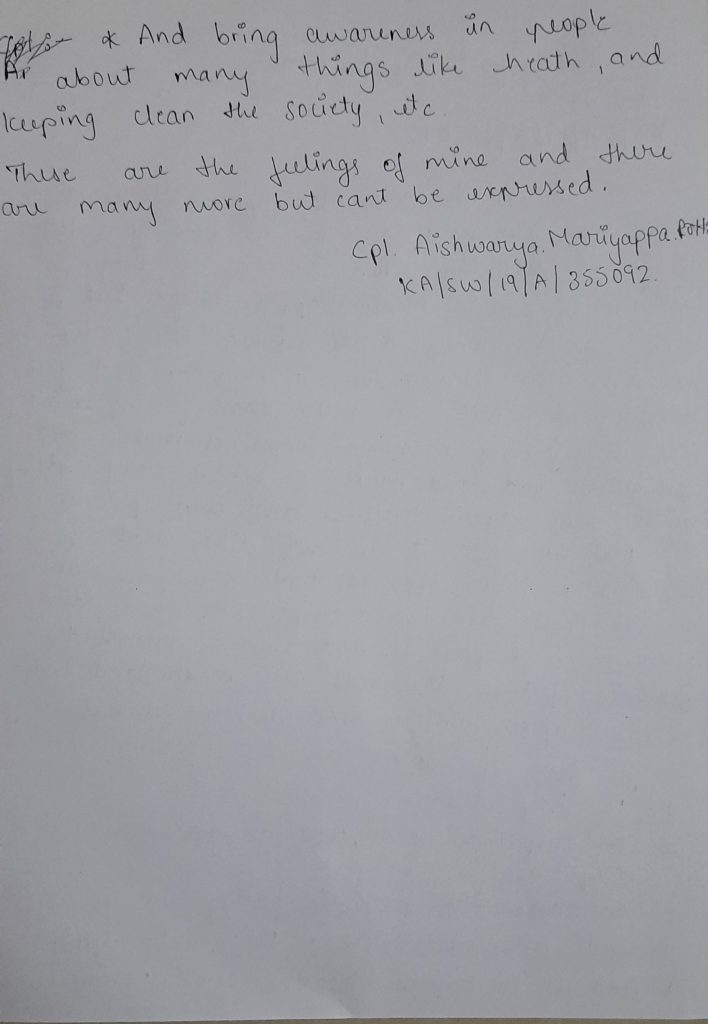 * And bring awareness in people
about many things like heath, and
keeping clean the society, etc
These are the feelings of mine and there
are many more but cant be expressed.
Cpl. Aishwarya. Mariyappa.
KA/SW/19/A/355092.